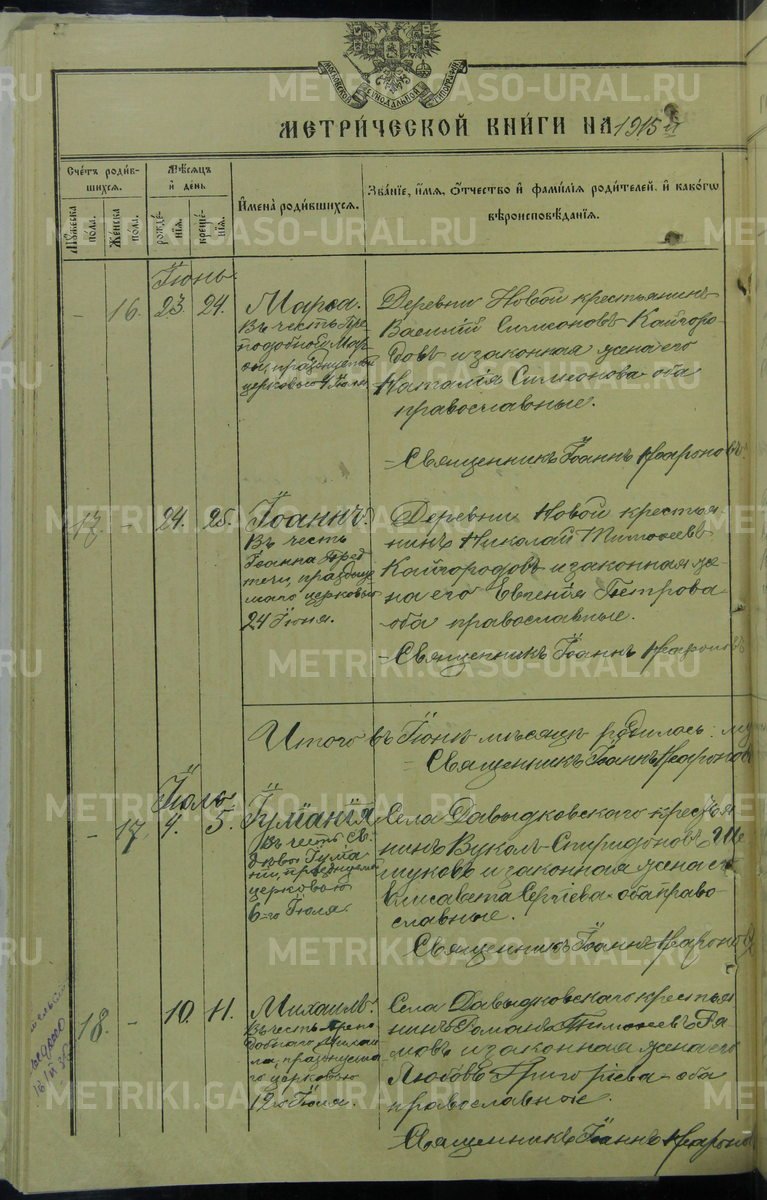 МОСКОВСКОЙ СѴНОДАЛЬНОЙ ТИПОГРАФІИ
МЕТРИ́ЧЕСКОЙ КНИ́ГИ НА 1915 й
Сче́тъ роди́в-
шихся.
Му́жеска по́ла.
Же́нска по́ла.
Мѣ́сяцъ
и҆ де́нь
рожде́-
нїѧ.
креще́-
нїѧ.
И҆мена̀ роди́вшихся.
Зва́нїе, и҆́мѧ, ѻ҆́тчество и҆ фами́лїѧ роди́телей, и҆ како́гѡ
вѣроисповѣ́данїѧ.
Іюнь
- 16. 23. 24.
Марѳа.
Въ честь Пре-
подобной Мар-
ѳы, празднуемой
церковью 4 Іюля
Деревни Новой крестьянинъ
Василій Симеоновъ Кайгоро-
довъ и законная жена его
Наталія Симеонова оба
православные.
Священникъ Іоаннъ
17. - 24. 25.
Іоаннъ.
Въ честь
Іоанна Пред-
течи, празднуе-
маго церковью
24 Іюня.
Деревни Новой крестья-
нинъ Николай Тимоѳеевъ
Кайгородовъ и законная же-
на его Евгенія Петрова
оба православные.
Священникъ Іоаннъ
Итого въ Іюнѣ мѣсяцѣ родилось: му
Священникъ Іоаннъ
Іюль
- 17. 4. 5.
Іуліанія
Въ честь Св.
дѣвы Іулиа-
ніи, празднуемой
церковью
6-го Іюля.
Села Давыдковскаго крестья
нинъ Вуколъ Спиридоновъ
и законная жена его
Елисавета Сергіева оба право-
славные.
Священникъ Іоаннъ
18. - 10. 11.
Михаилъ.
Въ честь препо-
добнаго Михаи-
ла, празднуема-
го церковью
12го Іюля.
Села Давыдковскаго крестья
нинъ Романъ Тимоѳеевъ
и законная жена его
Любовь Григоріева оба
православные.
Священникъ Іоаннъ
METRIKI.GASO-URAL.RU